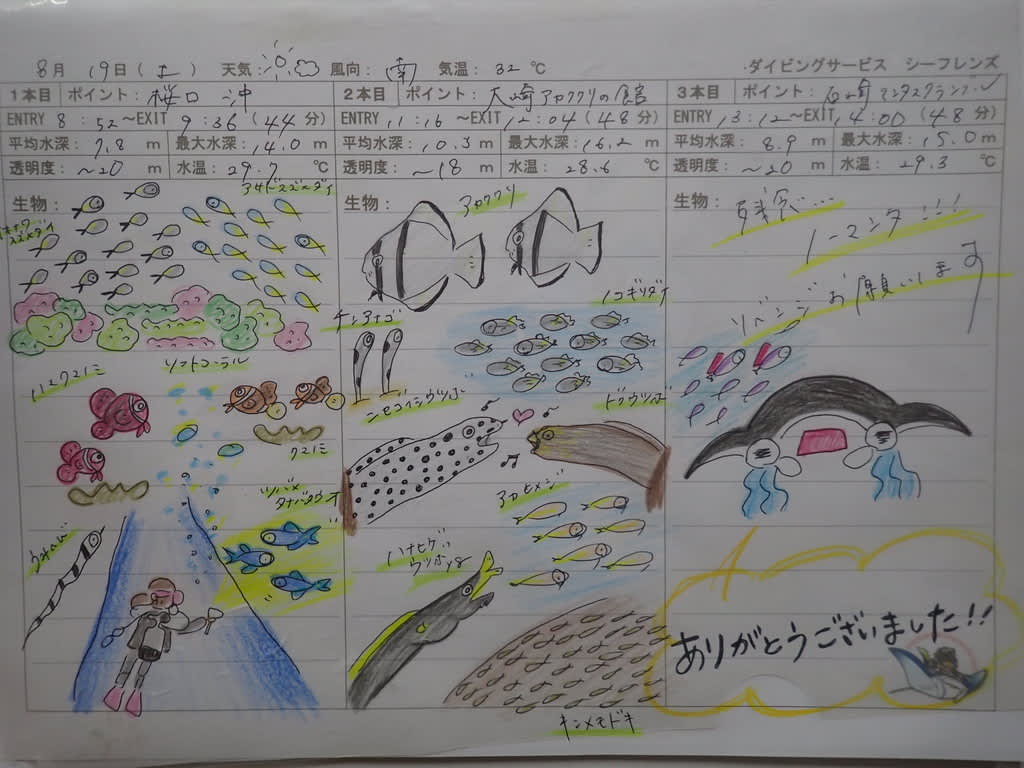 8月 19日 (土) 天気: 風向: 南 気温: 32 ℃ :ダイビングサービス シーフレンズ
1本目 ポイント: 桜口 沖
ENTRY 8 : 52 ～EXIT 9 : 36 (44 分)
平均水深: 7.8 m 最大水深: 14.0 m
透明度: ～20 m 水温: 29.7 ℃
生物:
アサドスズメダイ
スズメダイ
ソフトコーラル
ハマクマノミ
クマノミ
ツバメ
タナバタウオ
ウミヘビ
2本目 ポイント: 大崎 アカククリの館
ENTRY 11 : 16 ～EXIT 12 : 04 (48 分)
平均水深: 10.3 m 最大水深: 16.2 m
透明度: ～18 m 水温: 28.6 ℃
生物:
アカククリ
ノコギリダイ
チンアナゴ
ニセゴイシウツボ
ドクウツボ
アカヒメジ
ハナヒゲ
ウツボ
キンメモドキ
3本目 ポイント: 石崎 マンタスクランブル
ENTRY 13 : 12 ～EXIT 14 : 00 (48 分)
平均水深: 8.9 m 最大水深: 15.0 m
透明度: ～20 m 水温: 29.3 ℃
生物:
残念...
ノーマンタ!!!
リベンジ お願いします
ありがとうございました!!